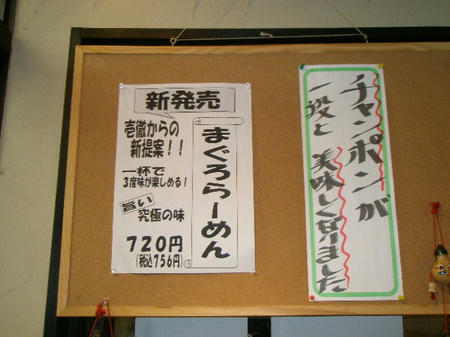 新発売
まぐろらーめん
壱徹からの
新提案！！
一杯で
3度味が楽しめる！
旨い
究極の味
720円
(税込756円)
チャンポンが
一段と美味しくなりました